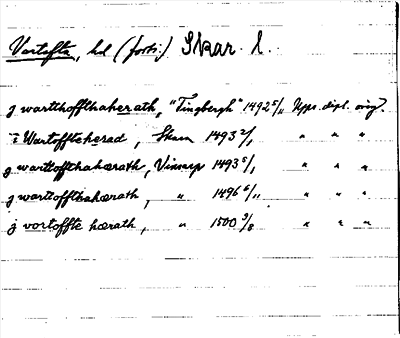 Vartofta, hd (forts.) Skar. l.
j wartthoffthaherath, "Tingbergh" 1492 5/11 Upps. dipl. orig.
i Wartoffteherad, Skara 1493 2/1 " " "
j warttoffthahærath, Vinsarp 1493 5/1 " " "
j warttoffthahærath, " 1496 6/11 " " "
j vortoffte hærath, " 1500 3/8 " " "